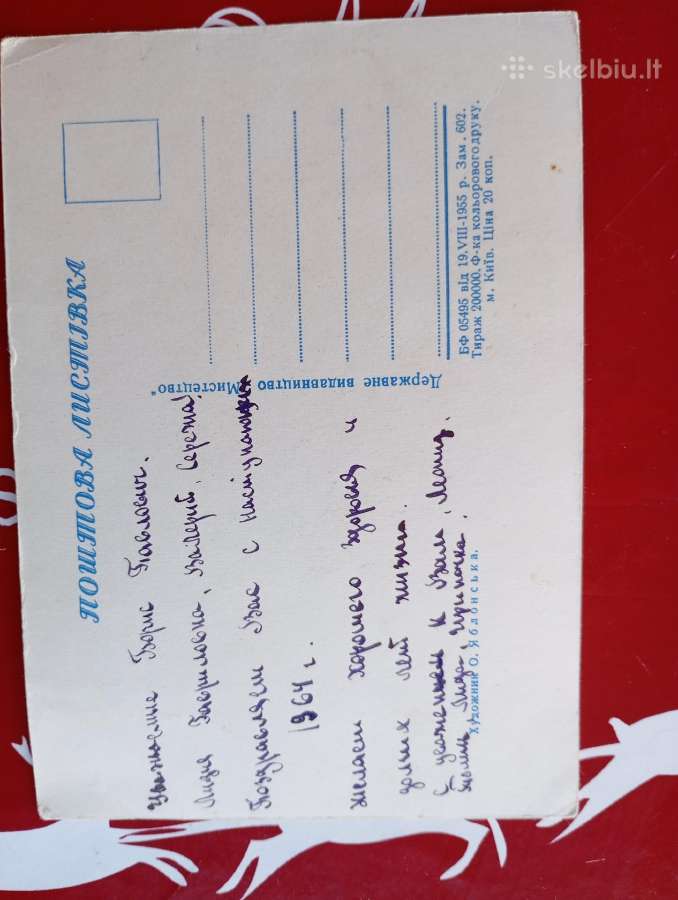 skelbiu.lt
ПОШТОВА ЛИСТІВКА
Уважаемые Борис Павлович.
Лидия Гавриловна, Валерий, Сережа!
Поздравляем Вас с наступающим
1964 г.
Желаем хорошего здоровья и
долгих лет жизни.
С уважением к Вам, Леонид,
Лида, Ирочка.
Державне видавництво „Мистецтво"
Художник О. Яблонська.
БФ 05495 від 19.VIII-1955 р. Зам. 602.
Тираж 200000. Ф-ка кольорового друку,
м. Київ. Ціна 20 коп.